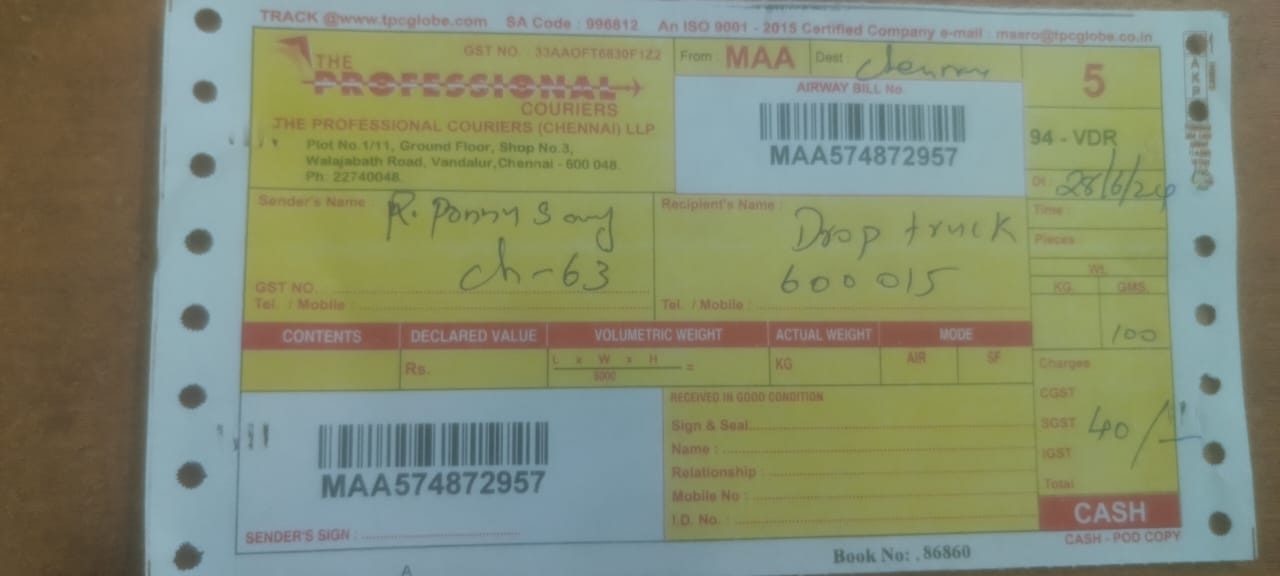 TRACK @www.tpcglobe.com SA Code : 996812 An ISO 9001 - 2015 Certified Company e-mail : maaro@tpcglobe.co.in
GST NO. : 33AAOFT6830F1Z2
THE
PROFESSIONAL
COURIERS
THE PROFESSIONAL COURIERS (CHENNAI) LLP
Plot No.1/11, Ground Floor, Shop No.3,
Walajabath Road, Vandalur,Chennai - 600 048.
Ph: 22740048.
From : MAA Dest : Chennai
AIRWAY BILL No.
MAA574872957
5
94 - VDR
Dt : 28/6/24
Time :
Pieces
Wt.
KG. GMS.
100
Sender's Name : R. Ponnusamy
Ch-63
GST NO.
Tel. / Mobile :
Recipient's Name : Drop truck
600015
Tel. / Mobile :
CONTENTS DECLARED VALUE VOLUMETRIC WEIGHT ACTUAL WEIGHT MODE
Rs. L x W x H = KG AIR SF
5000
Charges
CGST
SGST 40/-
IGST
Total
CASH
CASH - POD COPY
MAA574872957
SENDER'S SIGN :
RECEIVED IN GOOD CONDITION
Sign & Seal
Name :
Relationship :
Mobile No :
I.D. No. :
Book No: . 86860
A